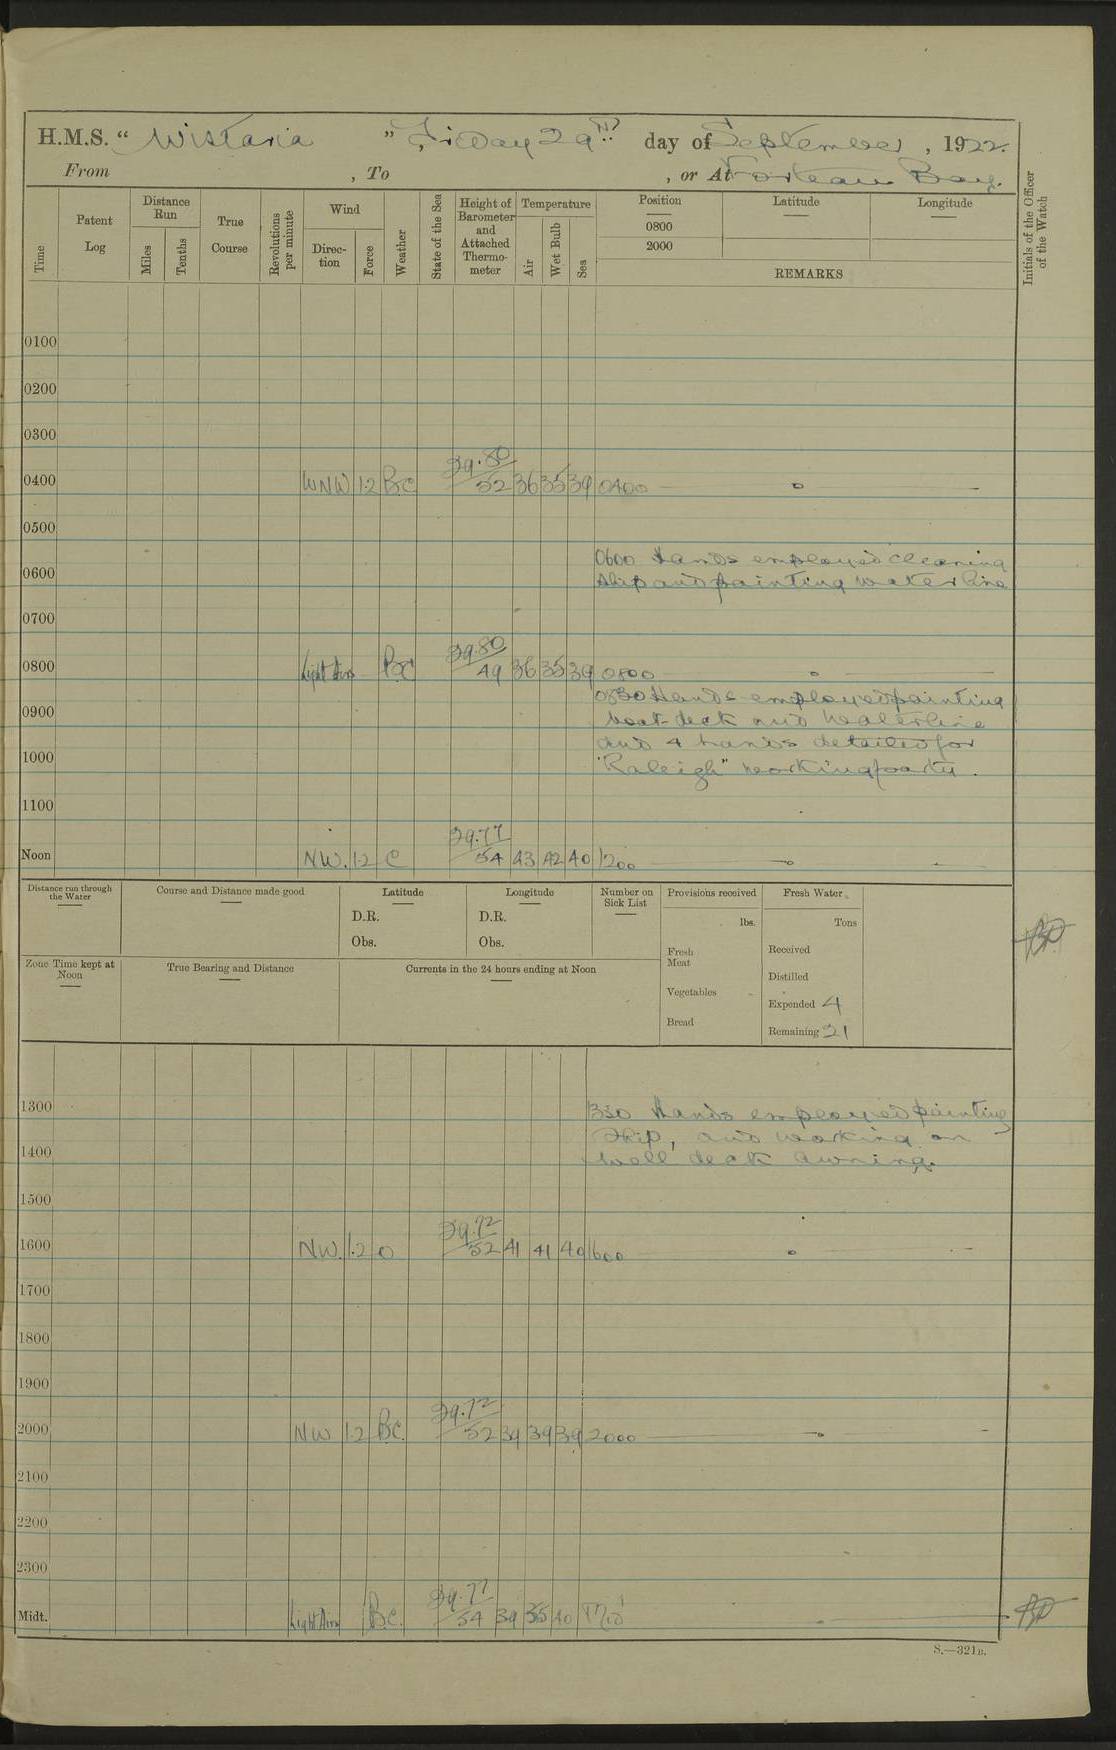 H.M.S. " Wistaria " Friday 29th day of September, 1922.
From , To , or At Forteau Bay.
Time
Patent Log
Distance Run
Miles
Tenths
True Course
Revolutions per minute
Wind
Direc-tion
Force
Weather
State of the Sea
Height of Barometer and Attached Thermo-meter
Temperature
Air
Wet Bulb
Sea
Position
0800
2000
Latitude
Longitude
REMARKS
Initials of the Officer of the Watch
0100
0200
0300
29.80
0400 WNW 1.2 BC 52 36 35 39 0400
0500
0600 Hands employed cleaning
0600 ship and painting waterline
0700
29.80
0800 Light Airs BC 49 36 35 39 0800
0830 Hands employed painting
0900 boat-deck and waterline
and 4 hands detailed for
1000 "Raleigh" working party.
1100
29.77
Noon NW. 1.2 C 54 43 42 40 1200
Distance run through the Water
Course and Distance made good
Latitude
D.R.
Obs.
Longitude
D.R.
Obs.
Number on Sick List
Provisions received
lbs.
Fresh Meat
Vegetables
Bread
Fresh Water
Tons
Received
Distilled
Expended 4
Remaining 21
Zone Time kept at Noon
True Bearing and Distance
Currents in the 24 hours ending at Noon
1300 1330 Hands employed painting
ship, and working on
1400 well deck awning.
1500
29.72
1600 NW. 1.2 O 52 41 41 40 1600
1700
1800
1900
29.72
2000 NW 1.2 BC. 52 39 39 39 2000
2100
2200
2300
29.77
Midt. Light Airs BC. 54 39 35 40
S.—321B.